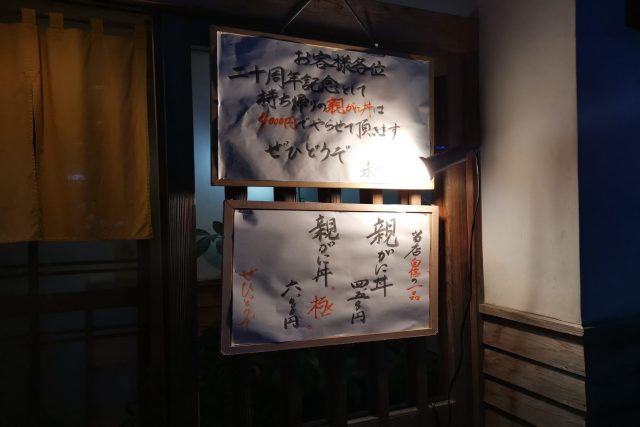 お客様各位
二十周年記念として
持ち帰りの親がに丼は
4000円でやらせて頂きます
ぜひどうぞ
当店自慢の一品
親がに丼
四、五〇〇円
親がに丼 極
六、〇〇〇円
ぜひどうぞ